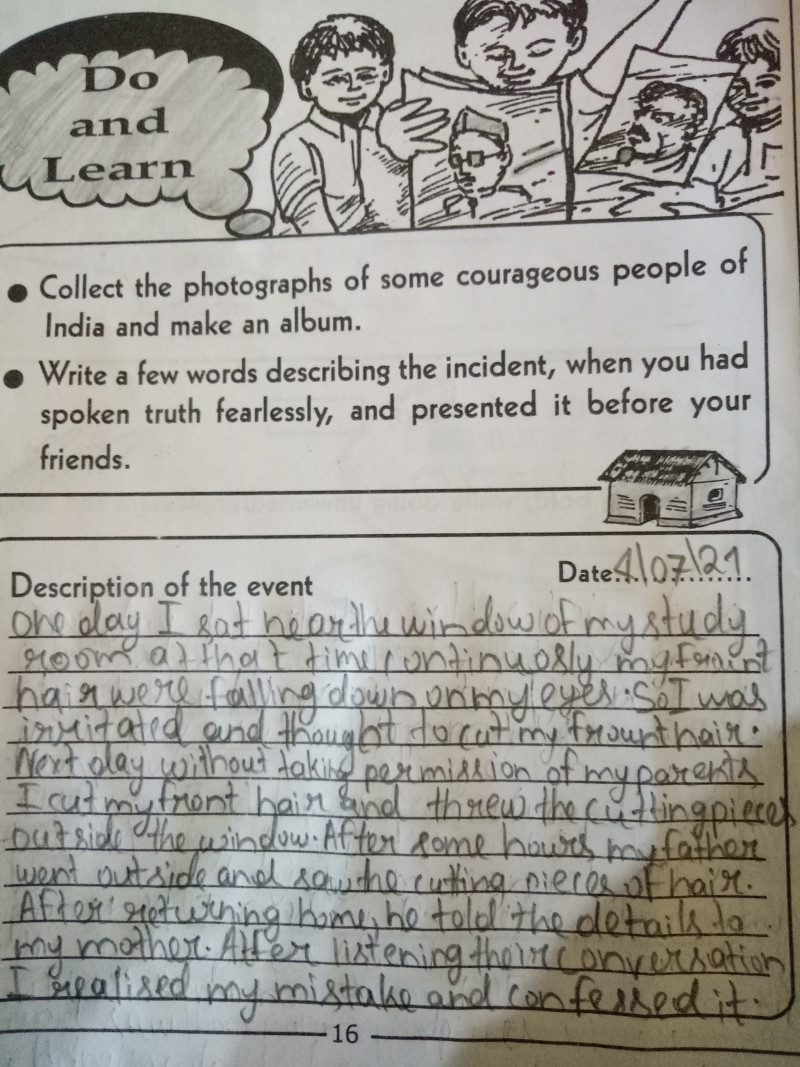 Do
and
Learn
● Collect the photographs of some courageous people of
India and make an album.
● Write a few words describing the incident, when you had
spoken truth fearlessly, and presented it before your
friends.
Description of the event
Date:4/07/21
One day I sat near the window of my study
room at that time continuously my fraint
hair were falling down on my eyes. So I was
irritated and thought to cut my frount hair.
Next day without taking permission of my parents
I cut my front hair and threw the cutting pieces
outside the window. After some hours my father
went outside and saw the cutting pieces of hair.
After returning home, he told the details to
my mother. After listening their conversation
I realised my mistake and confessed it.
16